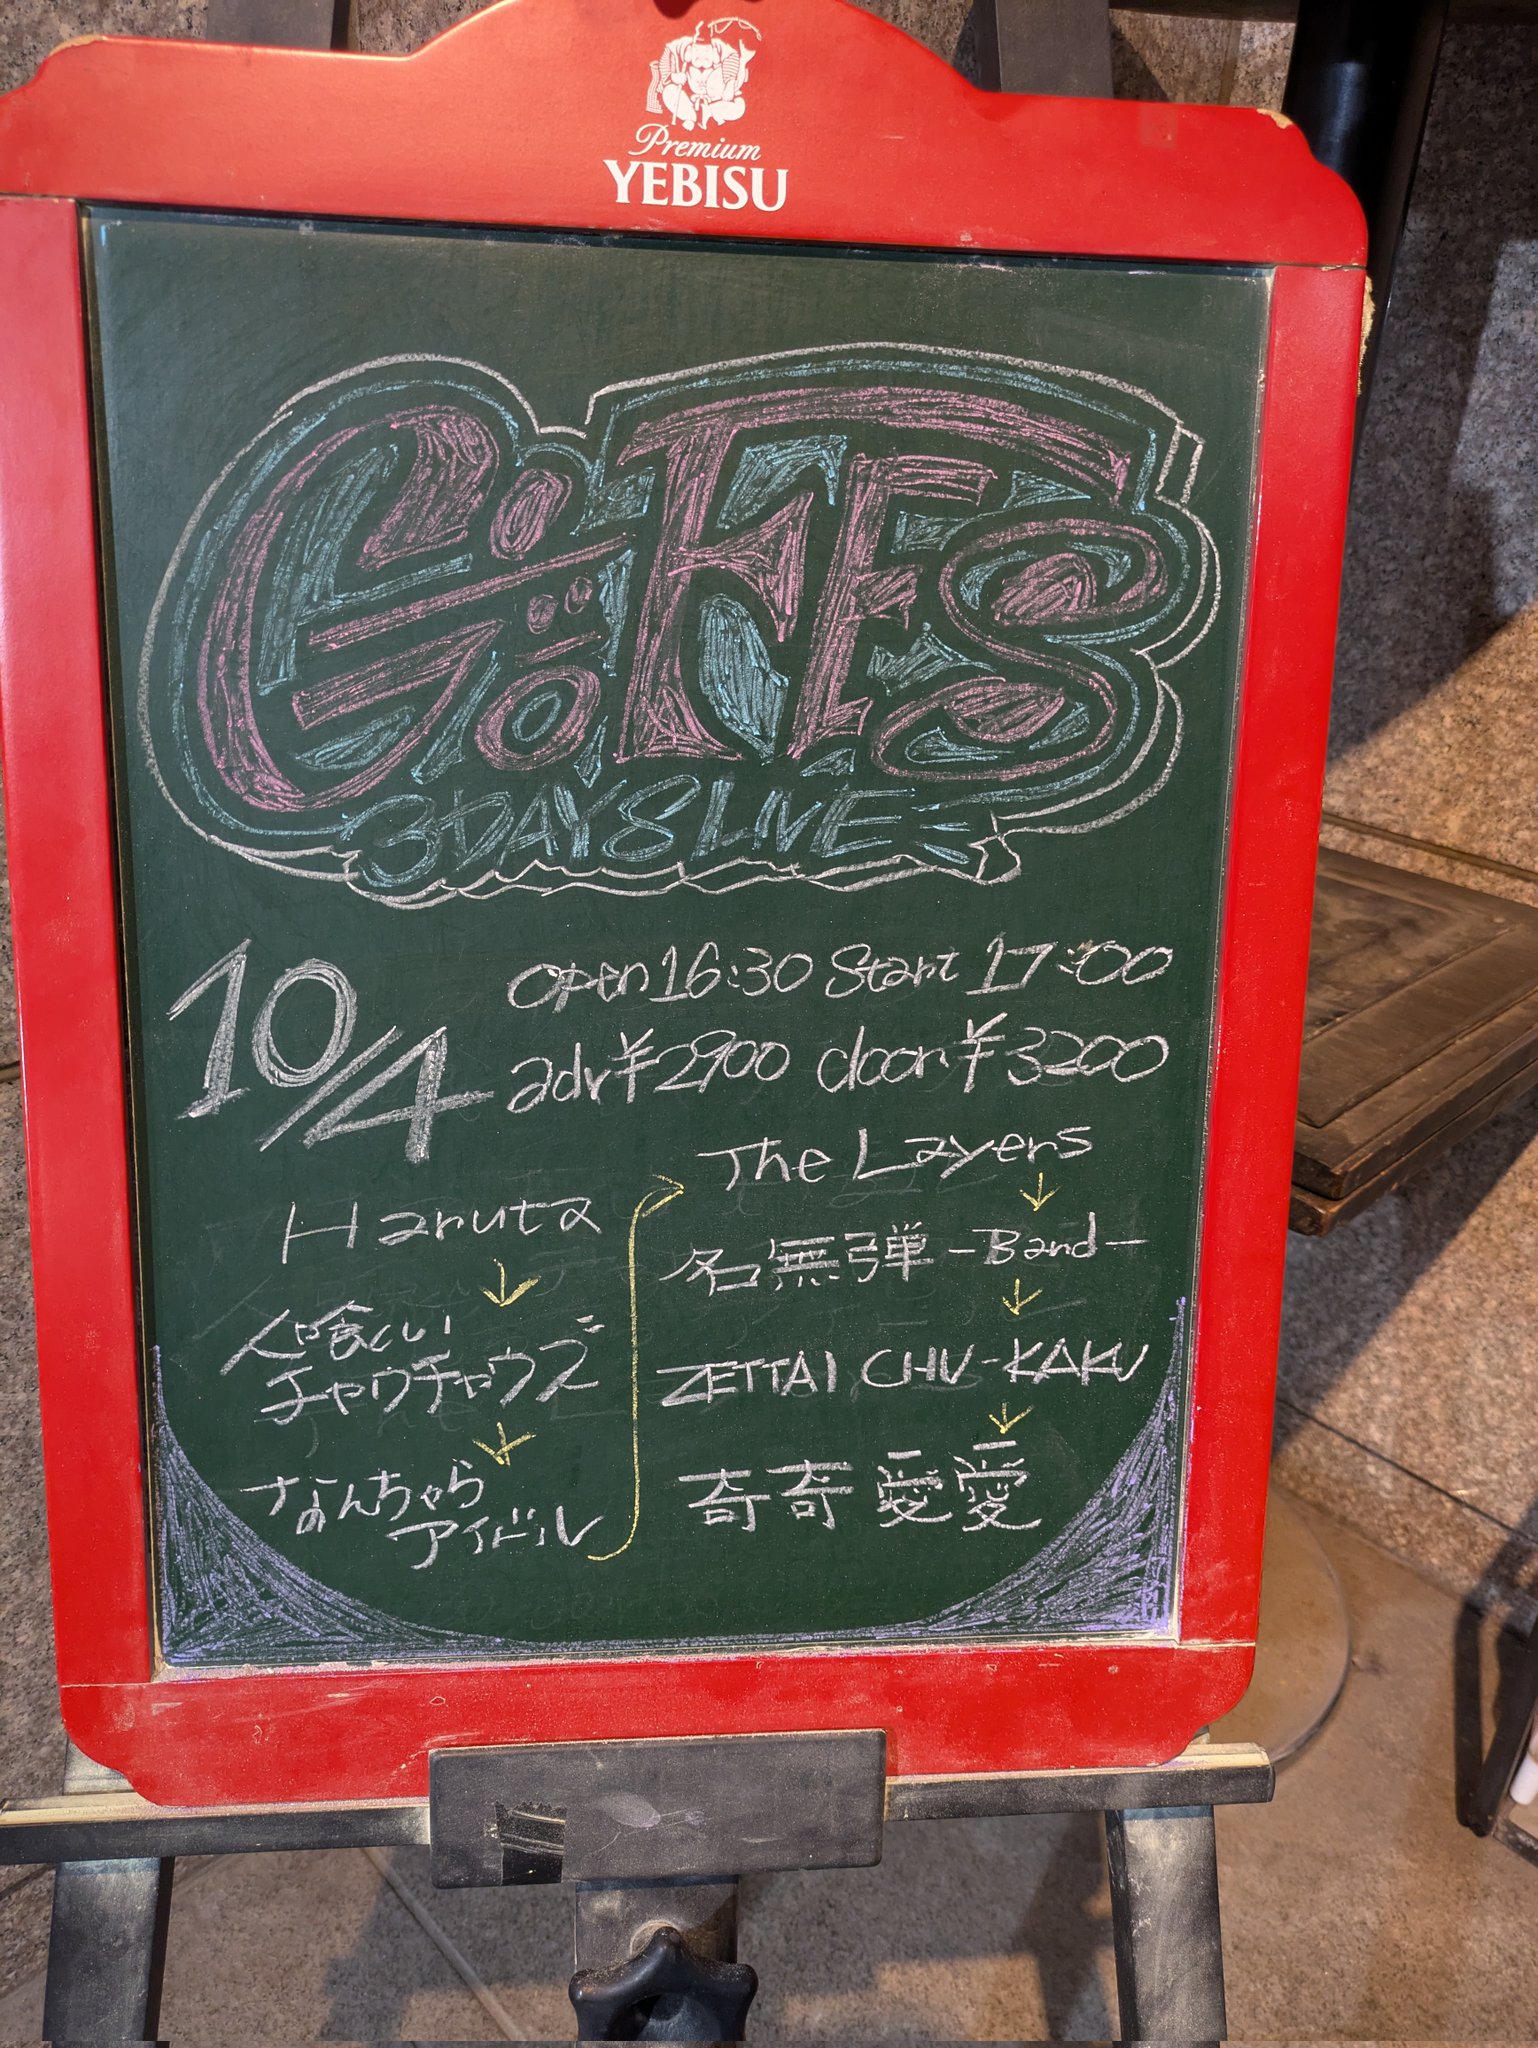 Premium
YEBISU
3DAYS LIVE
10/4
open 16:30 Start 17:00
adv ¥2900 door ¥3200
Haruta
↓
人喰い
チャウチャウズ
↓
なんちゃら
アイドル
The Layers
↓
名無弾-Band-
↓
ZETTAI CHU-KAKU
↓
奇奇愛愛